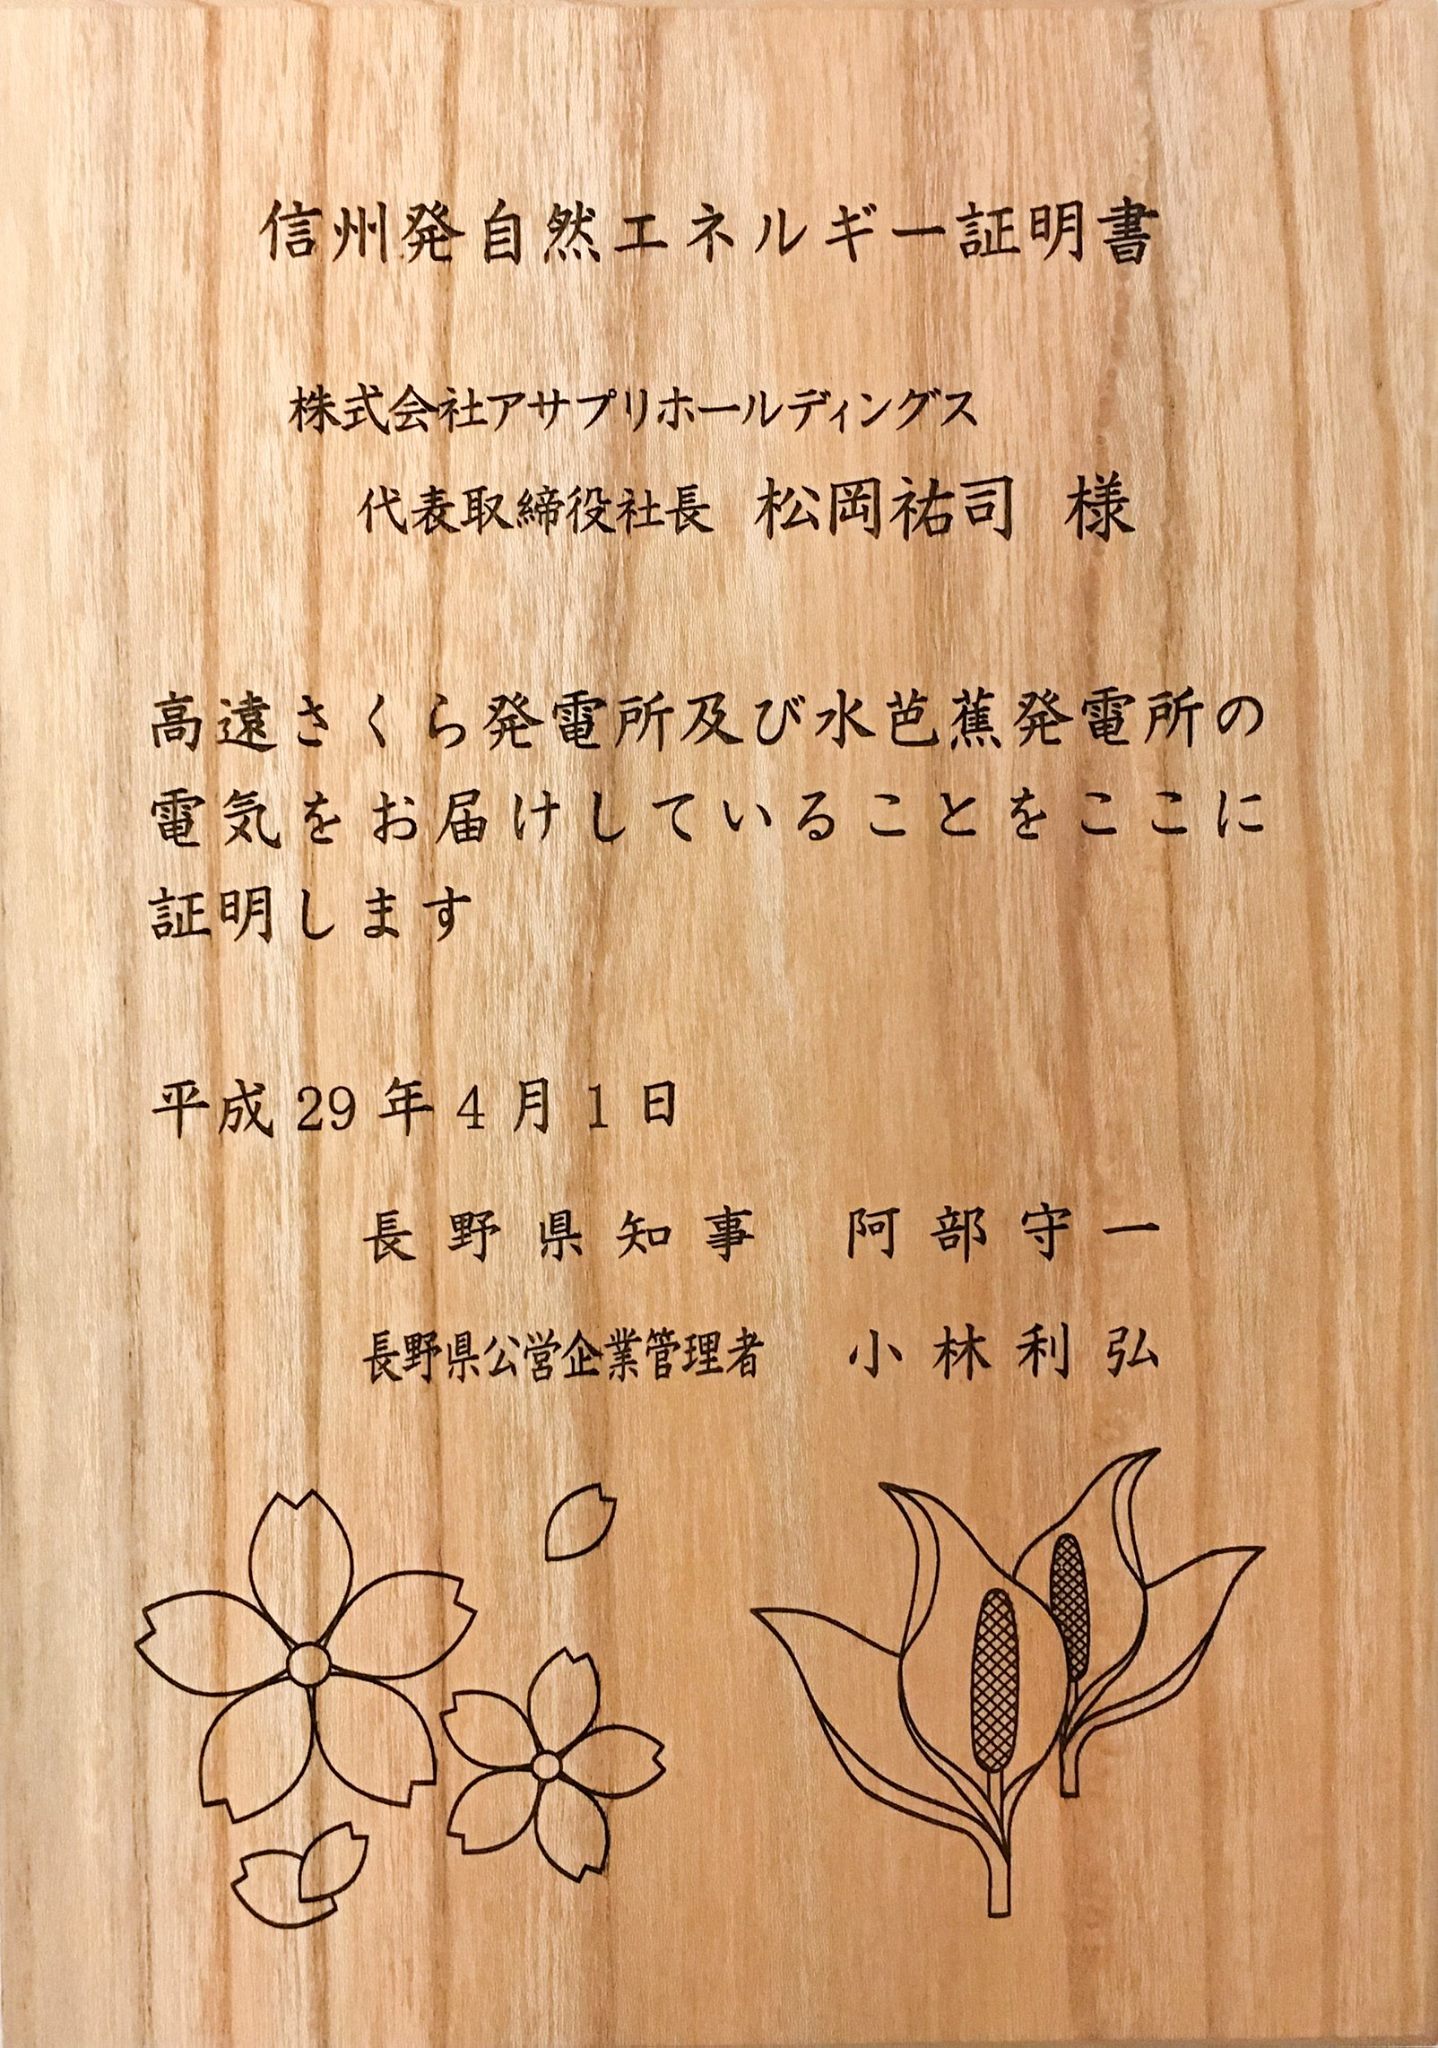 信州発自然エネルギー証明書
株式会社アサプリホールディングス
代表取締役社長 松岡祐司 様
高遠さくら発電所及び水芭蕉発電所の
電気をお届けしていることをここに
証明します
平成29年4月1日
長野県知事 阿部守一
長野県公営企業管理者 小林利弘